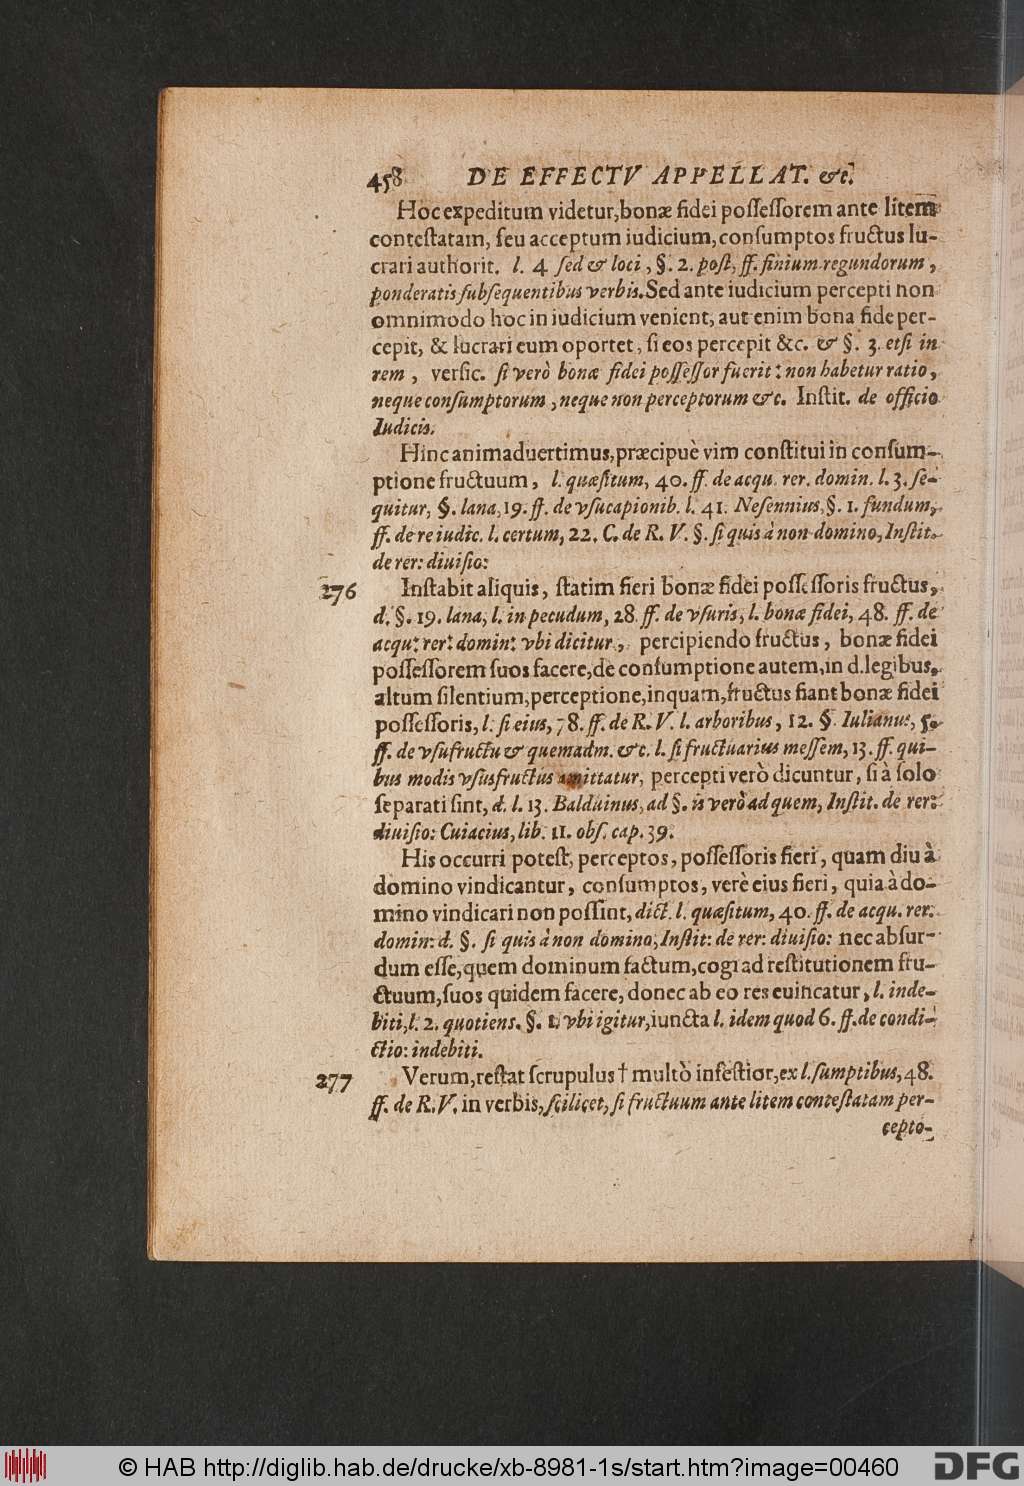 458 DE EFFECTV APPELLAT. &c.
Hoc expeditum videtur, bonæ fidei poſſeſſorem ante litem
conteſtatam, ſeu acceptum iudicium, conſumptos fructus lu-
crari authorit. l. 4 ſed & loci, §. 2. poſt, ff. finium regundorum,
ponderatis ſubſequentibus verbis. Sed ante iudicium percepti non
omnimodo hoc in iudicium venient, aut enim bona fide per-
cepit, & lucrari eum oportet, ſi eos percepit &c. & §. 3. etſi in
rem, verſic. ſi verò bonæ fidei poſſeſſor fuerit: non habetur ratio,
neque conſumptorum, neque non perceptorum &c. Inſtit. de officio
Iudicis.
Hinc animaduertimus, præcipuè vim conſtitui in conſum-
ptione fructuum, l. quæſitum, 40. ff. de acqu. rer. domin. l. 3. ſe-
quitur, §. lana, 19. ff. de vſucapionib. l. 41. Neſennius, §. 1. fundum,
ff. de re iudic. l. certum, 22. C. de R. V. §. ſi quis à non domino, Inſtit.
de rer: diuiſio:
276 Inſtabit aliquis, ſtatim fieri bonæ fidei poſſeſſoris fructus,
d. §. 19. lana, l. in pecudum, 28. ff. de vſuris, l. bonæ fidei, 48. ff. de
acqu: rer: domin: vbi dicitur, percipiendo fructus, bonæ fidei
poſſeſſorem ſuos facere, de conſumptione autem, in d. legibus,
altum ſilentium, perceptione, inquam, fructus fiant bonæ fidei
poſſeſſoris, l. ſi eius, 78. ff. de R. V. l. arboribus, 12. §. Iulianus, 5.
ff. de vſufructu & quemadm. &c. l. ſi fructuarius meſſem, 13. ff. qui-
bus modis vſusfructus amittatur, percepti verò dicuntur, ſi à ſolo
ſeparati ſint, d. l. 13. Balduinus, ad §. is verò ad quem, Inſtit. de rer:
diuiſio: Cuiacius, lib. 11. obſ. cap. 39.
His occurri poteſt, perceptos, poſſeſſoris fieri, quam diu à
domino vindicantur, conſumptos, verè eius fieri, quia à do-
mino vindicari non poſſint, dict. l. quæſitum, 40. ff. de acqu. rer:
domin: d. §. ſi quis à non domino, Inſtit: de rer: diuiſio: nec abſur-
dum eſſe, quem dominum factum, cogi ad reſtitutionem fru-
ctuum, ſuos quidem facere, donec ab eo res euincatur, l. inde-
biti, l. 2. quotiens. §. 1. vbi igitur, iuncta l. idem quod 6. ff. de condi-
ctio: indebiti.
277 Verum, reſtat ſcrupulus † multò infeſtior, ex l. ſumptibus, 48.
ff. de R. V. in verbis, ſcilicet, ſi fructuum ante litem conteſtatam per-
cepto-
© HAB http://diglib.hab.de/drucke/xb-8981-1s/start.htm?image=00460
DFG